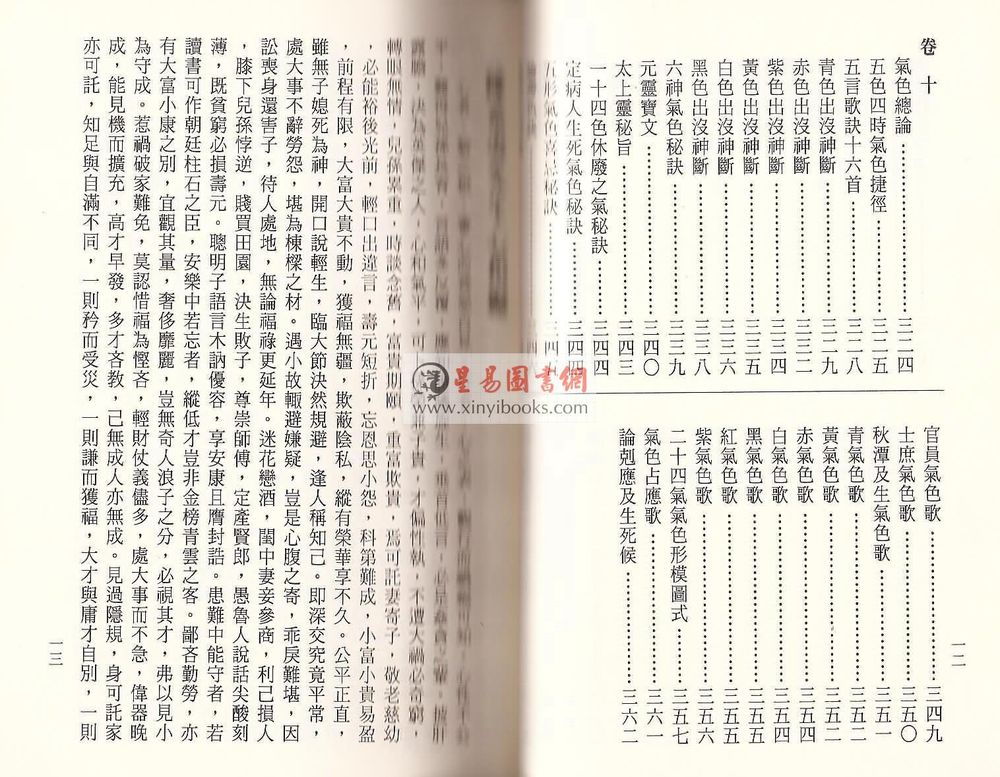 卷十
氣色總論……三二四
五色四時氣色捷徑……三二五
五言歌訣十六首……三二八
青色出沒神斷……三二九
赤色出沒神斷……三三二
紫色出沒神斷……三三四
黃色出沒神斷……三三五
白色出沒神斷……三三六
黑色出沒神斷……三三八
六神氣色秘訣……三三九
元靈寶文……三四〇
太上靈秘旨……三四三
一十四色休廢之氣秘訣……三四四
定病人生死氣色秘訣……三四四
五形氣色喜忌秘訣
官員氣色歌……三四九
士庶氣色歌……三五〇
秋潭及生氣色歌……三五一
青氣色歌……三五二
黃氣色歌……三五二
赤氣色歌……三五四
白氣色歌……三五四
黑氣色歌……三五五
紅氣色歌……三五五
紫氣色歌……三五六
二十四氣氣色形模圖式……三五七
氣色占應歌……三六一
論剋應及生死候……三六二
一二
轉眼無情,兒孫累重,時談念舊,富貴期頤,重富欺貴,焉可託妻寄子,敬老慈幼
,必能裕後光前,輕口出違言,壽元短折,忘恩思小怨,科第難成,小富小貴易盈
,前程有限,大富大貴不動,獲福無疆,欺蔽陰私,縱有榮華享不久。公平正直,
雖無子媳死為神,開口說輕生,臨大節決然規避,逢人稱知己。即深交究竟平常,
處大事不辭勞怨,堪為棟樑之材。遇小故輙避嫌疑,豈是心腹之寄,乖戾難堪,因
訟喪身還害子,待人處地,無論福祿更延年。迷花戀酒,閨中妻妾參商,利己損人
,膝下兒孫悖逆,賤買田園,決生敗子,尊崇師傅,定產賢郎,愚魯人說話尖酸刻
薄,既貧窮必損壽元。聰明子語言木訥優容,享安康且膺封誥。患難中能守者,若
讀書可作朝廷柱石之臣,安樂中若忘者,縱低才豈非金榜青雲之客。鄙吝勤勞,亦
有大富小康之別,宜觀其量,奢侈靡麗,豈無奇人浪子之分,必視其才,弗以見小
為守成。惹禍破家難免,莫認惜福為慳吝,輕財仗義儘多,處大事而不急,偉器晚
成,能見機而擴充,高才早發,多才吝教,己無成人亦無成。見過隱規,身可託家
亦可託,知足與自滿不同,一則矜而受災,一則謙而獲福,大才與庸才自別,一則
一三
星易圖書網
www.xinyibooks.com